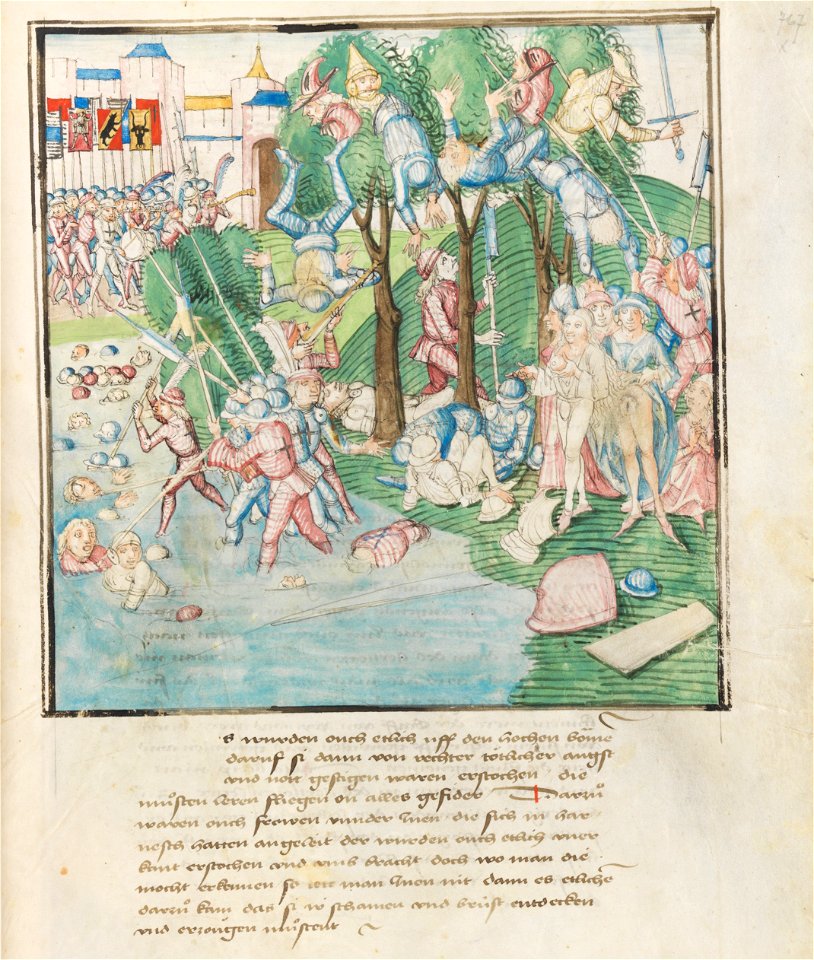 767
s wurden ouch etlich uff den hochen böme
daruf si dann von rechter tötlicher angst
und nott gestigen waren erstochen die
muͦsten leren fliegen on alles gefider Darzuͦ
waren ouch frowen under Inen die sich in har
nesch hatten angeleit der wurden ouch etlich uner
kant erstochen und umb bracht doch wo man die
mocht erkennen so tett man Inen nit dann es etliche
darzuͦ kam das si ir schamen und brüst entdecken
und erzöugen muͦstent